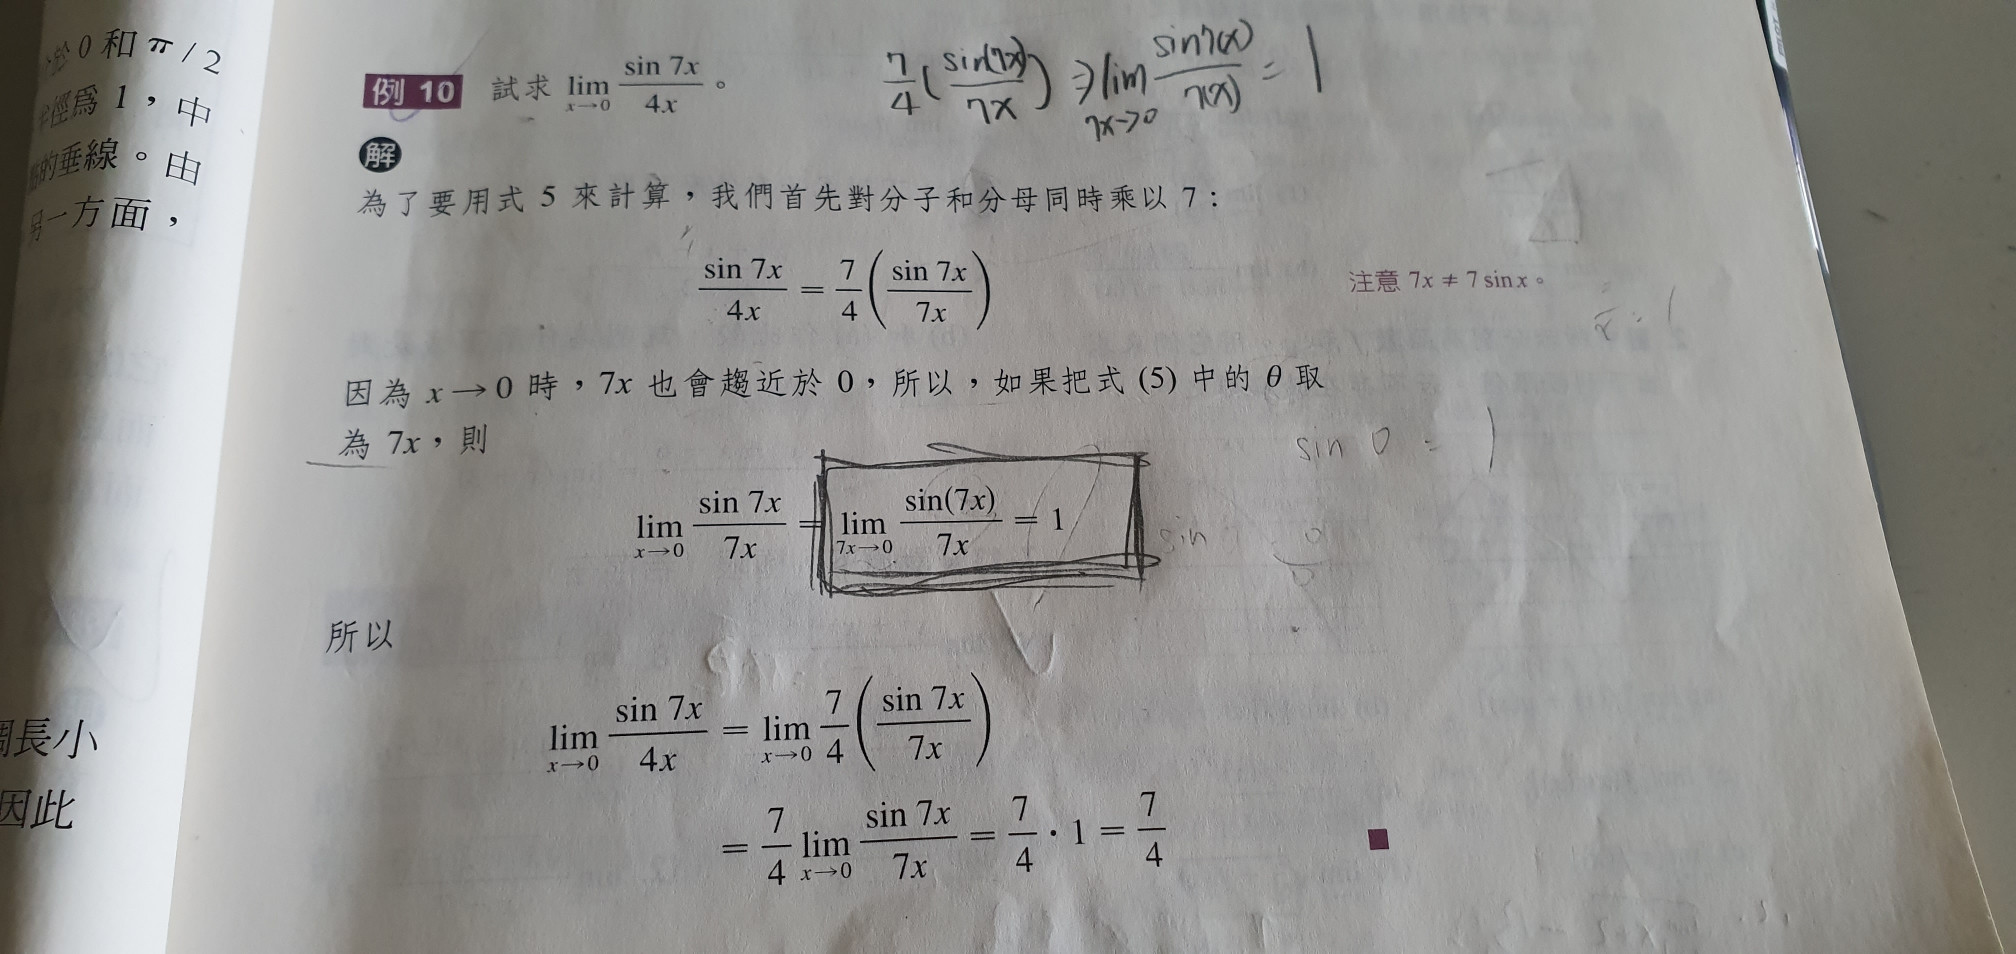 0 和 π / 2
徑為 1，中
的垂線。由
另一方面，
長小
因此
例 10 試求 lim x→0 sin 7x / 4x 。
7/4 ( sin(7x) / 7x ) ⇒ lim 7x→0 sin7(x) / 7(x) = 1
解
為了要用式 5 來計算，我們首先對分子和分母同時乘以 7：
sin 7x / 4x = 7/4 ( sin 7x / 7x )
注意 7x ≠ 7 sin x。
因為 x → 0 時，7x 也會趨近於 0，所以，如果把式 (5) 中的 θ 取
為 7x，則
sin 0 = 1
lim x→0 sin 7x / 7x = lim 7x→0 sin(7x) / 7x = 1
sin
所以
lim x→0 sin 7x / 4x = lim x→0 7/4 ( sin 7x / 7x )
= 7/4 lim x→0 sin 7x / 7x = 7/4 · 1 = 7/4